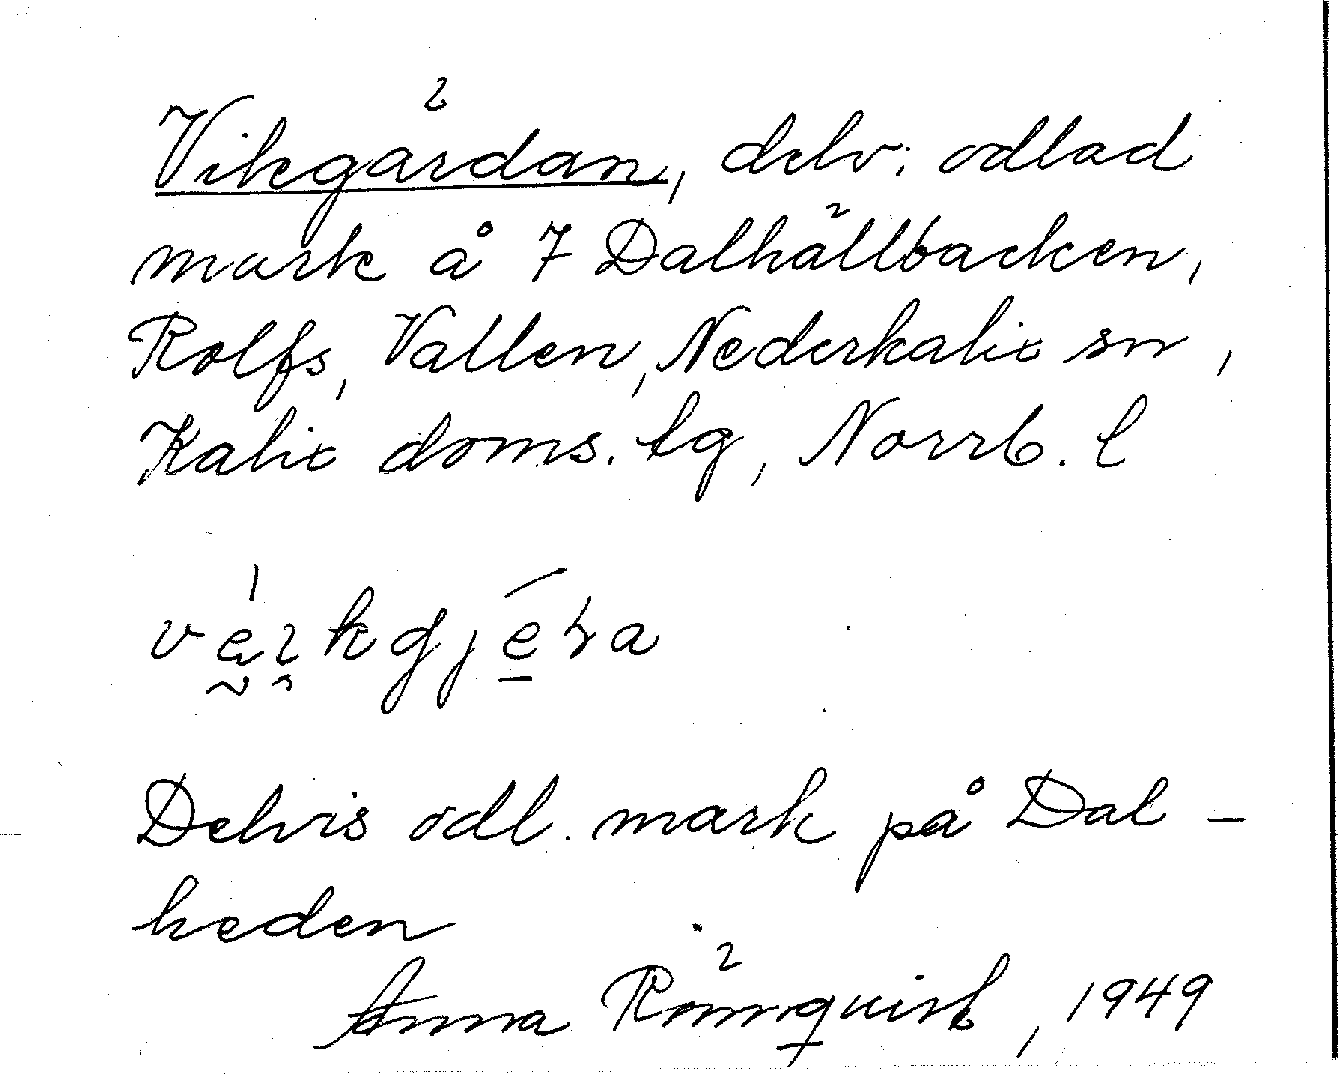 Vikgärdan, delv. odlad
mark å 7 Dalhällbacken,
Rolfs, Vallen, Nederkalix sn,
Kalix doms. lg, Norrb. l
Delvis odl. mark på Dal-
heden
Anna Rönnquist, 1949